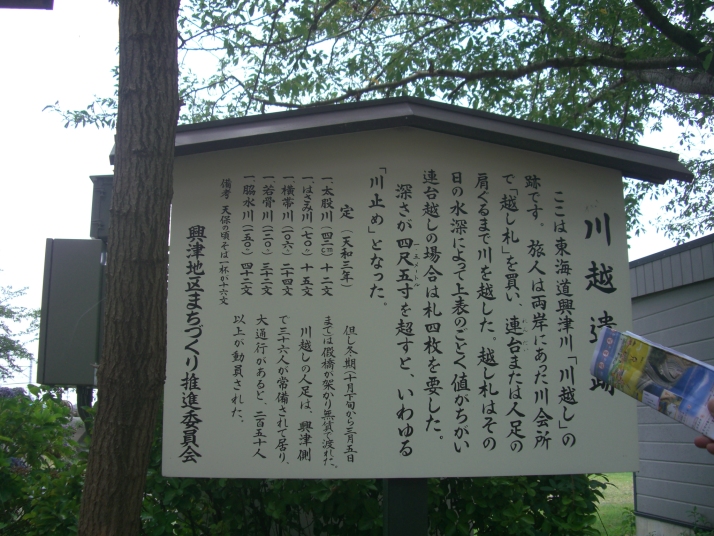 川越遺跡
ここは東海道興津川「川越し」の
跡です。旅人は両岸にあった川会所
で「越し札」を買い、連台または人足の
肩ぐるまで川を越した。越し札はその
日の水深によって上表のごとく値がちがい
連台越しの場合は札四枚を要した。
深さが四尺五寸を超すと、いわゆる
「川止め」となった。
定(天和三年)
一、太股川(四二)十二文
一、はさみ川(七〇)十五文
一、横帯川(一〇六)二十四文
一、若骨川(一三〇)三十二文
一、脇水川(一五〇)四十二文
備考 天保の頃そば一杯が十六文
但し冬期(十月下旬から三月五日
まで)は假橋が架かり無賃で渡れた。
川越しの人足は、興津側
で三十六人が常備されて居り、
大通行があると、二百五十人
以上が動員された、
興津地区まちづくり推進委員会